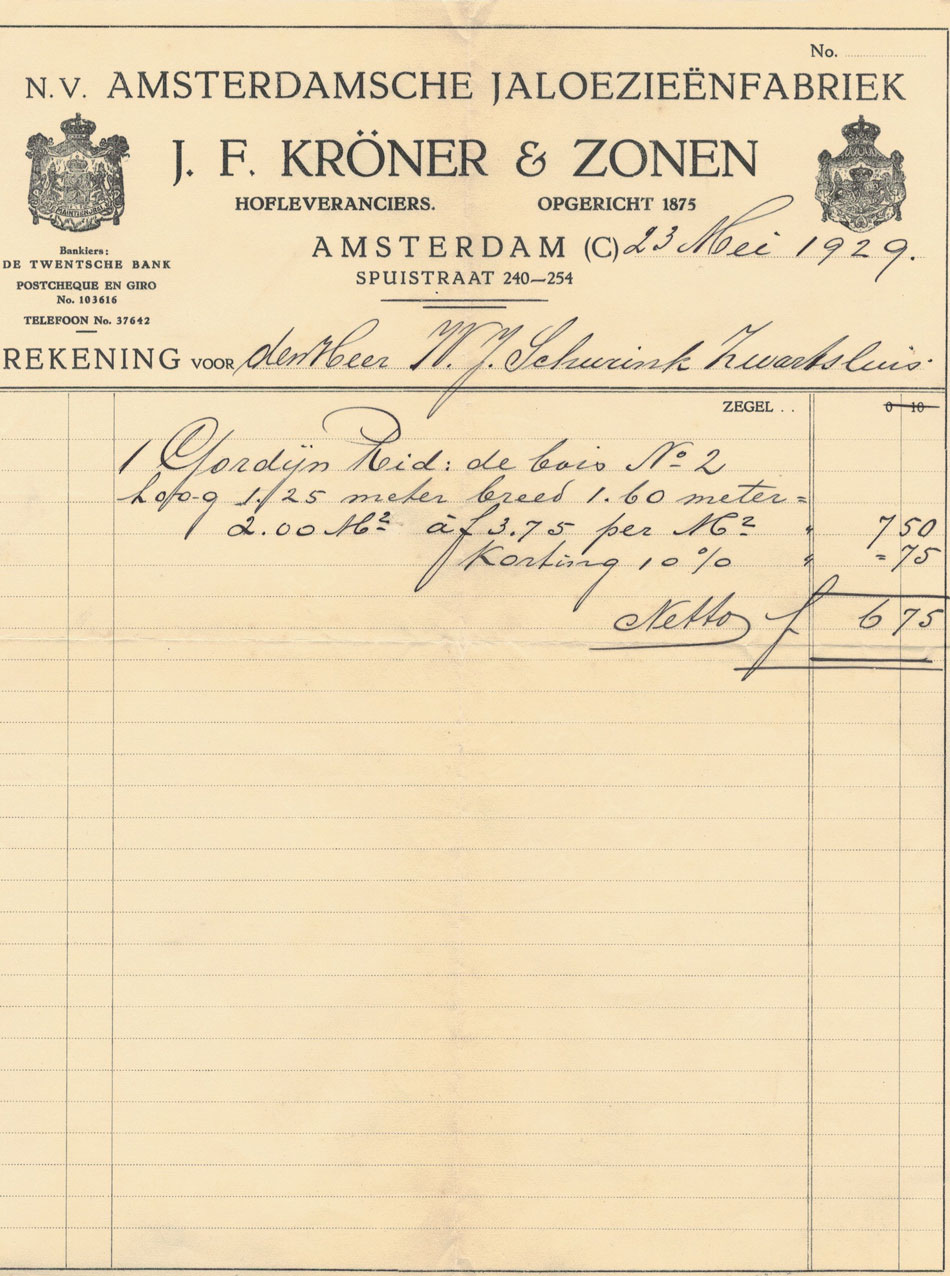 No.
N.V. AMSTERDAMSCHE JALOEZIEËNFABRIEK
J. F. KRÖNER & ZONEN
HOFLEVERANCIERS. OPGERICHT 1875
AMSTERDAM (C) 23 Mei 1929.
SPUISTRAAT 240—254
Bankiers:
DE TWENTSCHE BANK
POSTCHEQUE EN GIRO
No. 103616
TELEFOON No. 37642
REKENING VOOR den Heer W. J. Schurink Zwartsluis.
ZEGEL . . 0 10
1 Gordijn Rid: de bois No 2
hoog 1.25 meter breed 1.60 meter =
2.00 M² à f 3.75 per M² " 7 50
Korting 10 % " = 75
Netto f 6 75